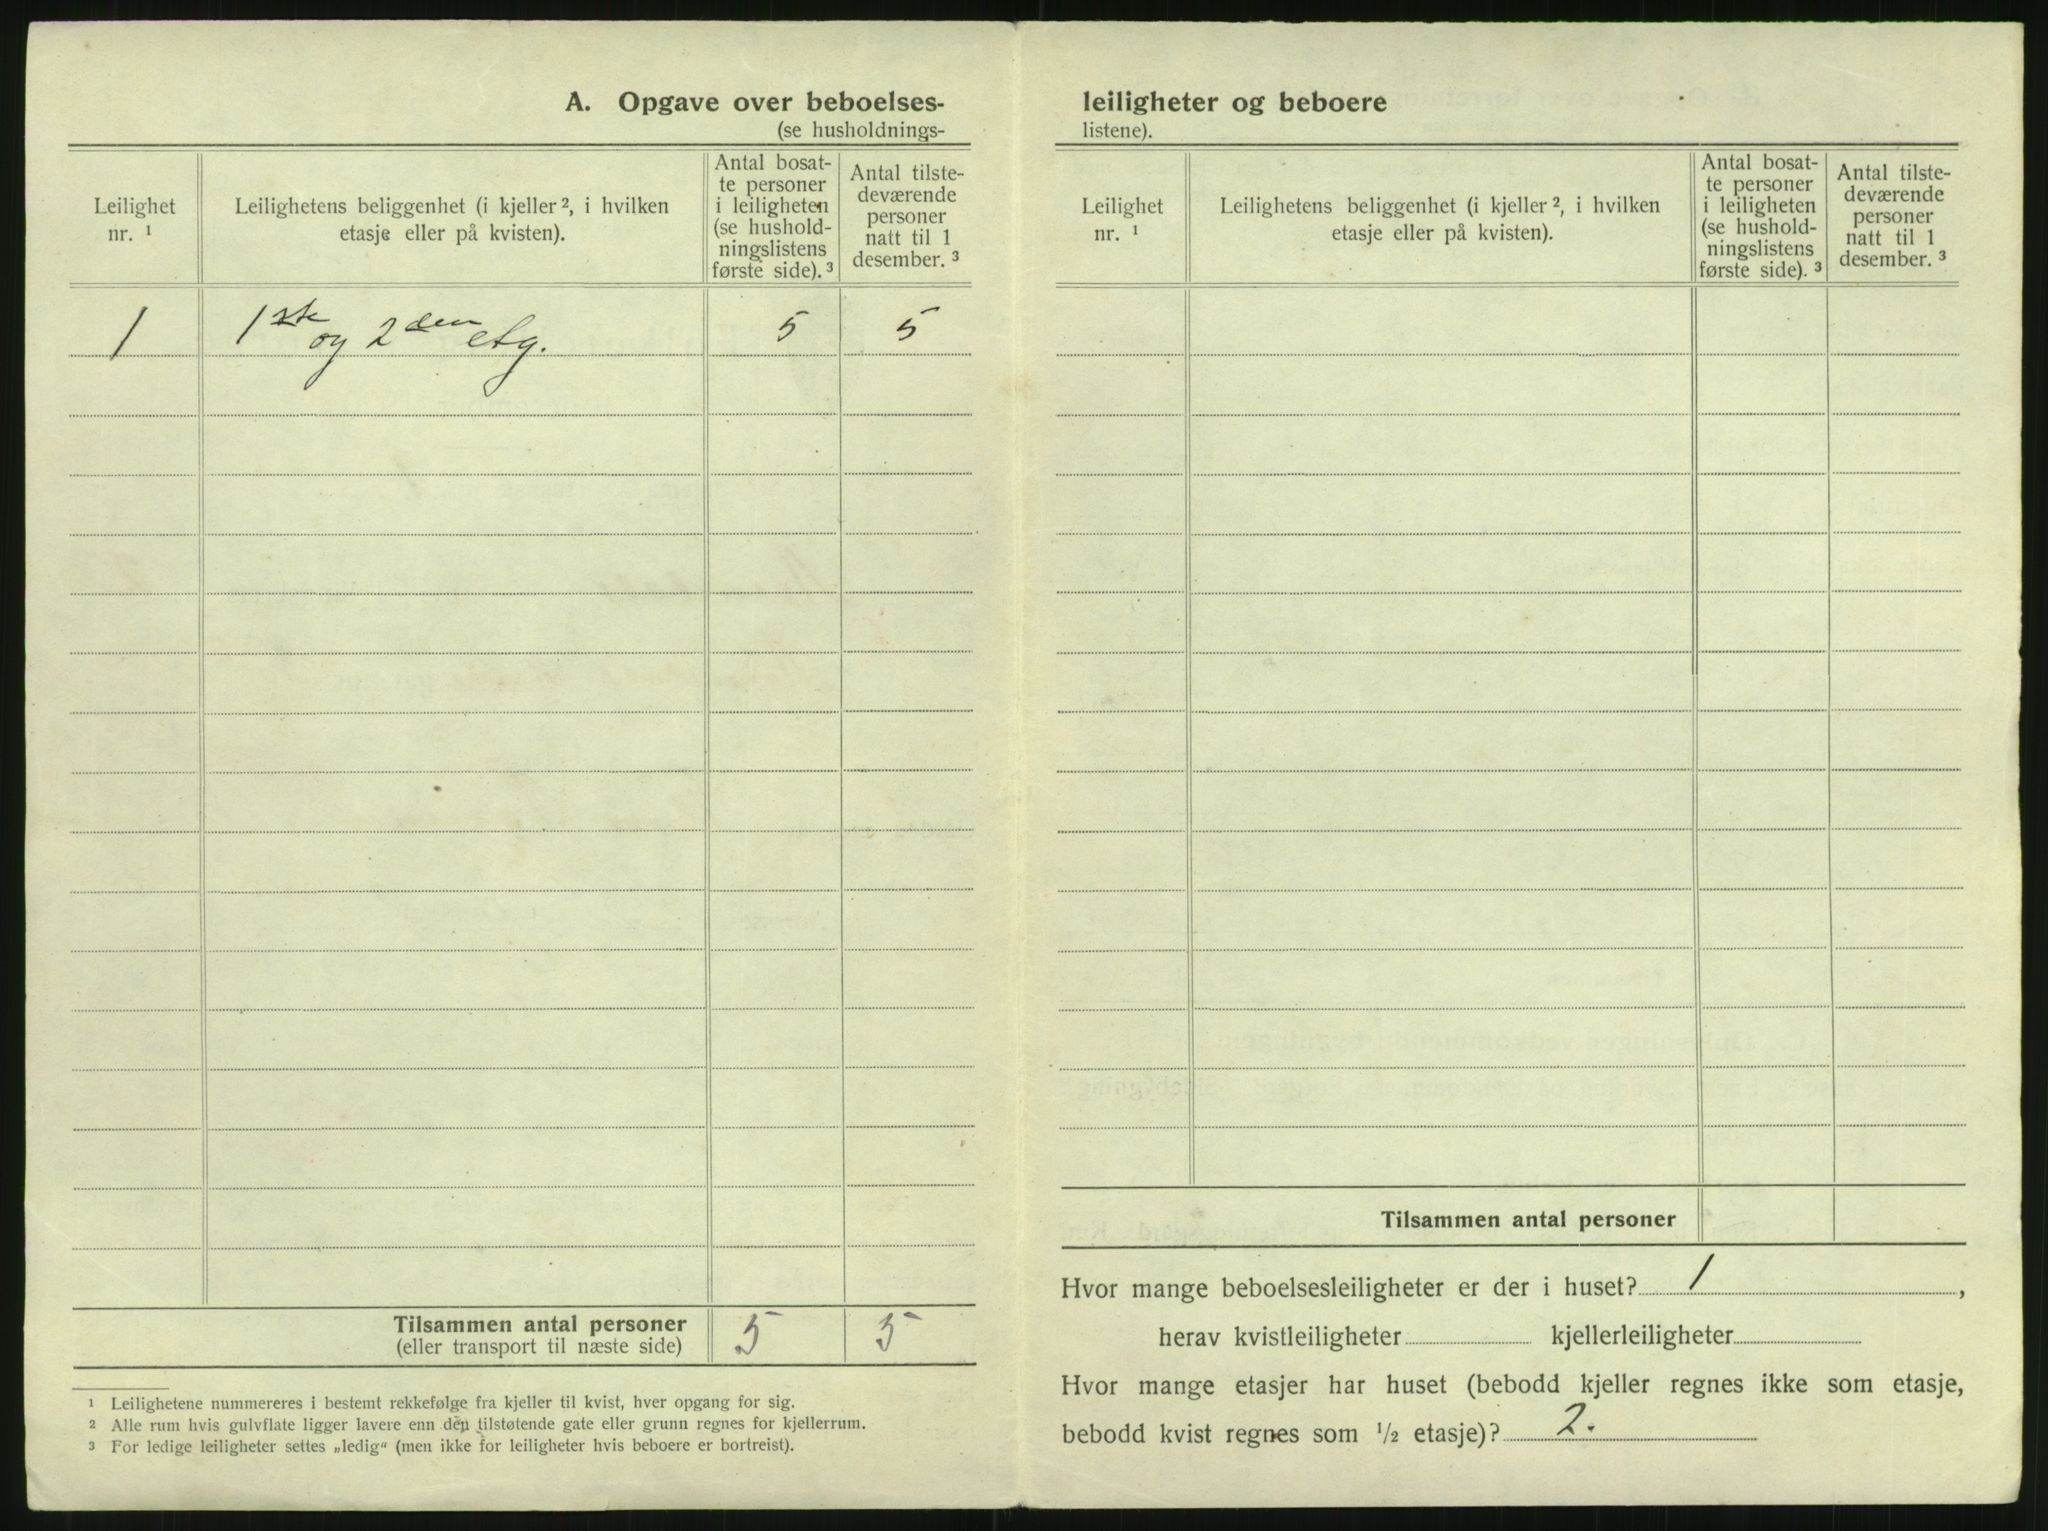 A. Opgave over beboelses-
(se husholdnings-
Leilighet
nr. ¹
Leilighetens beliggenhet (i kjeller ², i hvilken
etasje eller på kvisten).
Antal bosat-
te personer
i leiligheten
(se hushold-
ningslistens
første side). ³
Antal tilste-
deværende
personer
natt til 1
desember. ³
1 1ste og 2den etg. 5 5
Tilsammen antal personer 5 5
(eller transport til næste side)
¹ Leilighetene nummereres i bestemt rekkefølge fra kjeller til kvist, hver opgang for sig.
² Alle rum hvis gulvflate ligger lavere enn den tilstøtende gate eller grunn regnes for kjellerrum.
³ For ledige leiligheter settes „ledig“ (men ikke for leiligheter hvis beboere er bortreist).
leiligheter og beboere
listene).
Leilighet
nr. ¹
Leilighetens beliggenhet (i kjeller ², i hvilken
etasje eller på kvisten).
Antal bosat-
te personer
i leiligheten
(se hushold-
ningslistens
første side). ³
Antal tilste-
deværende
personer
natt til 1
desember. ³
Tilsammen antal personer
Hvor mange beboelsesleiligheter er der i huset? 1,
herav kvistleiligheter kjellerleiligheter
Hvor mange etasjer har huset (bebodd kjeller regnes ikke som etasje,
bebodd kvist regnes som ½ etasje)? 2.